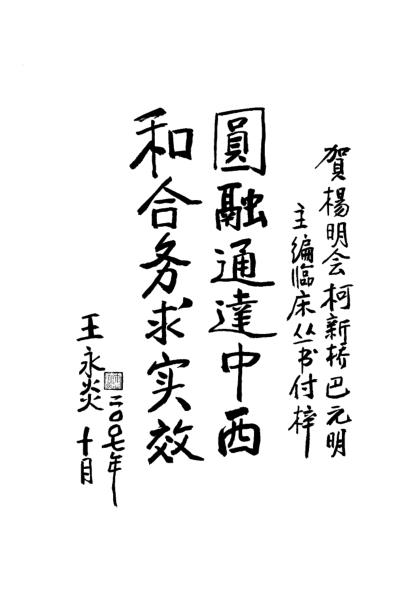 賀楊明会柯新桥巴元明
主编臨床丛书付梓
圓融通達中西
和合务求实效
二〇〇七年
十月
王永炎